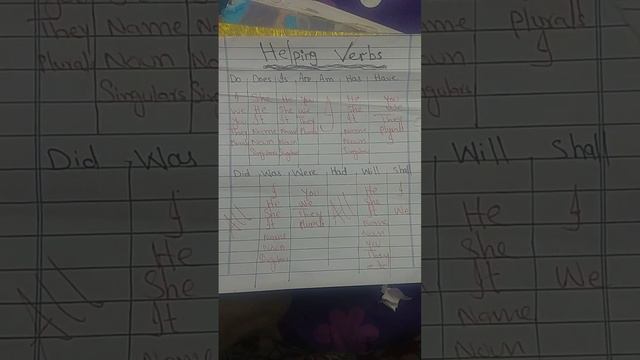 Helping Verbs
Do Does Is Are Am Has Have
I She He You I He You
We He She We She We
You It It They It They
They Name Name Plurals Name Plurals
Plurals Noun Noun Noun I
Singulars Singulars Singulars
Did Was Were Had Will Shall
I You He I
He We She
All She They All It We
It Plurals Name
Name Noun
Noun You
Singulars They